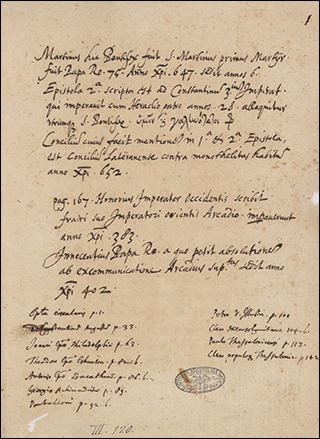 1
Martinus hic Pontifex fuit S. Martinus primus Martyr
fuit Papa Ro. 75. Anno Xpi. 647. sedit annos 6.
Epistola 2ª scripta est ad Constantinum Imperat.
qui imperauit cum Heraclio patre annos. 28. alloquitur
S. Pontifex.
Concilium cuius facit mentionem in 1ª & 2ª Epistola,
est Concilium Lateranense contra monothelitas habitum
anno Xpi. 652.
pag. 167. Honorius Imperator Occidentis scribit
fratri suo Imperatori orientis Arcadio. imperauerunt
anno Xpi. 383.
Innocentius Papa Ro. a quo petit absolutionem
ab excommunicatione Arcadius sedit anno
Xpi 402.
Epla circularis p. 1.
p. 33.
Joanni Epo Philadelphie p. 63.
Theodoro Epo
Antonio Epo
Georgio Archimandrite p. 89.
Pantaleoni p. 92. b.
Petro V. Illustri p. 100
Clero
Paulo Thessalonicensi p. 112.
Clero populoq. Thessalonice p. 162.
III. 120.